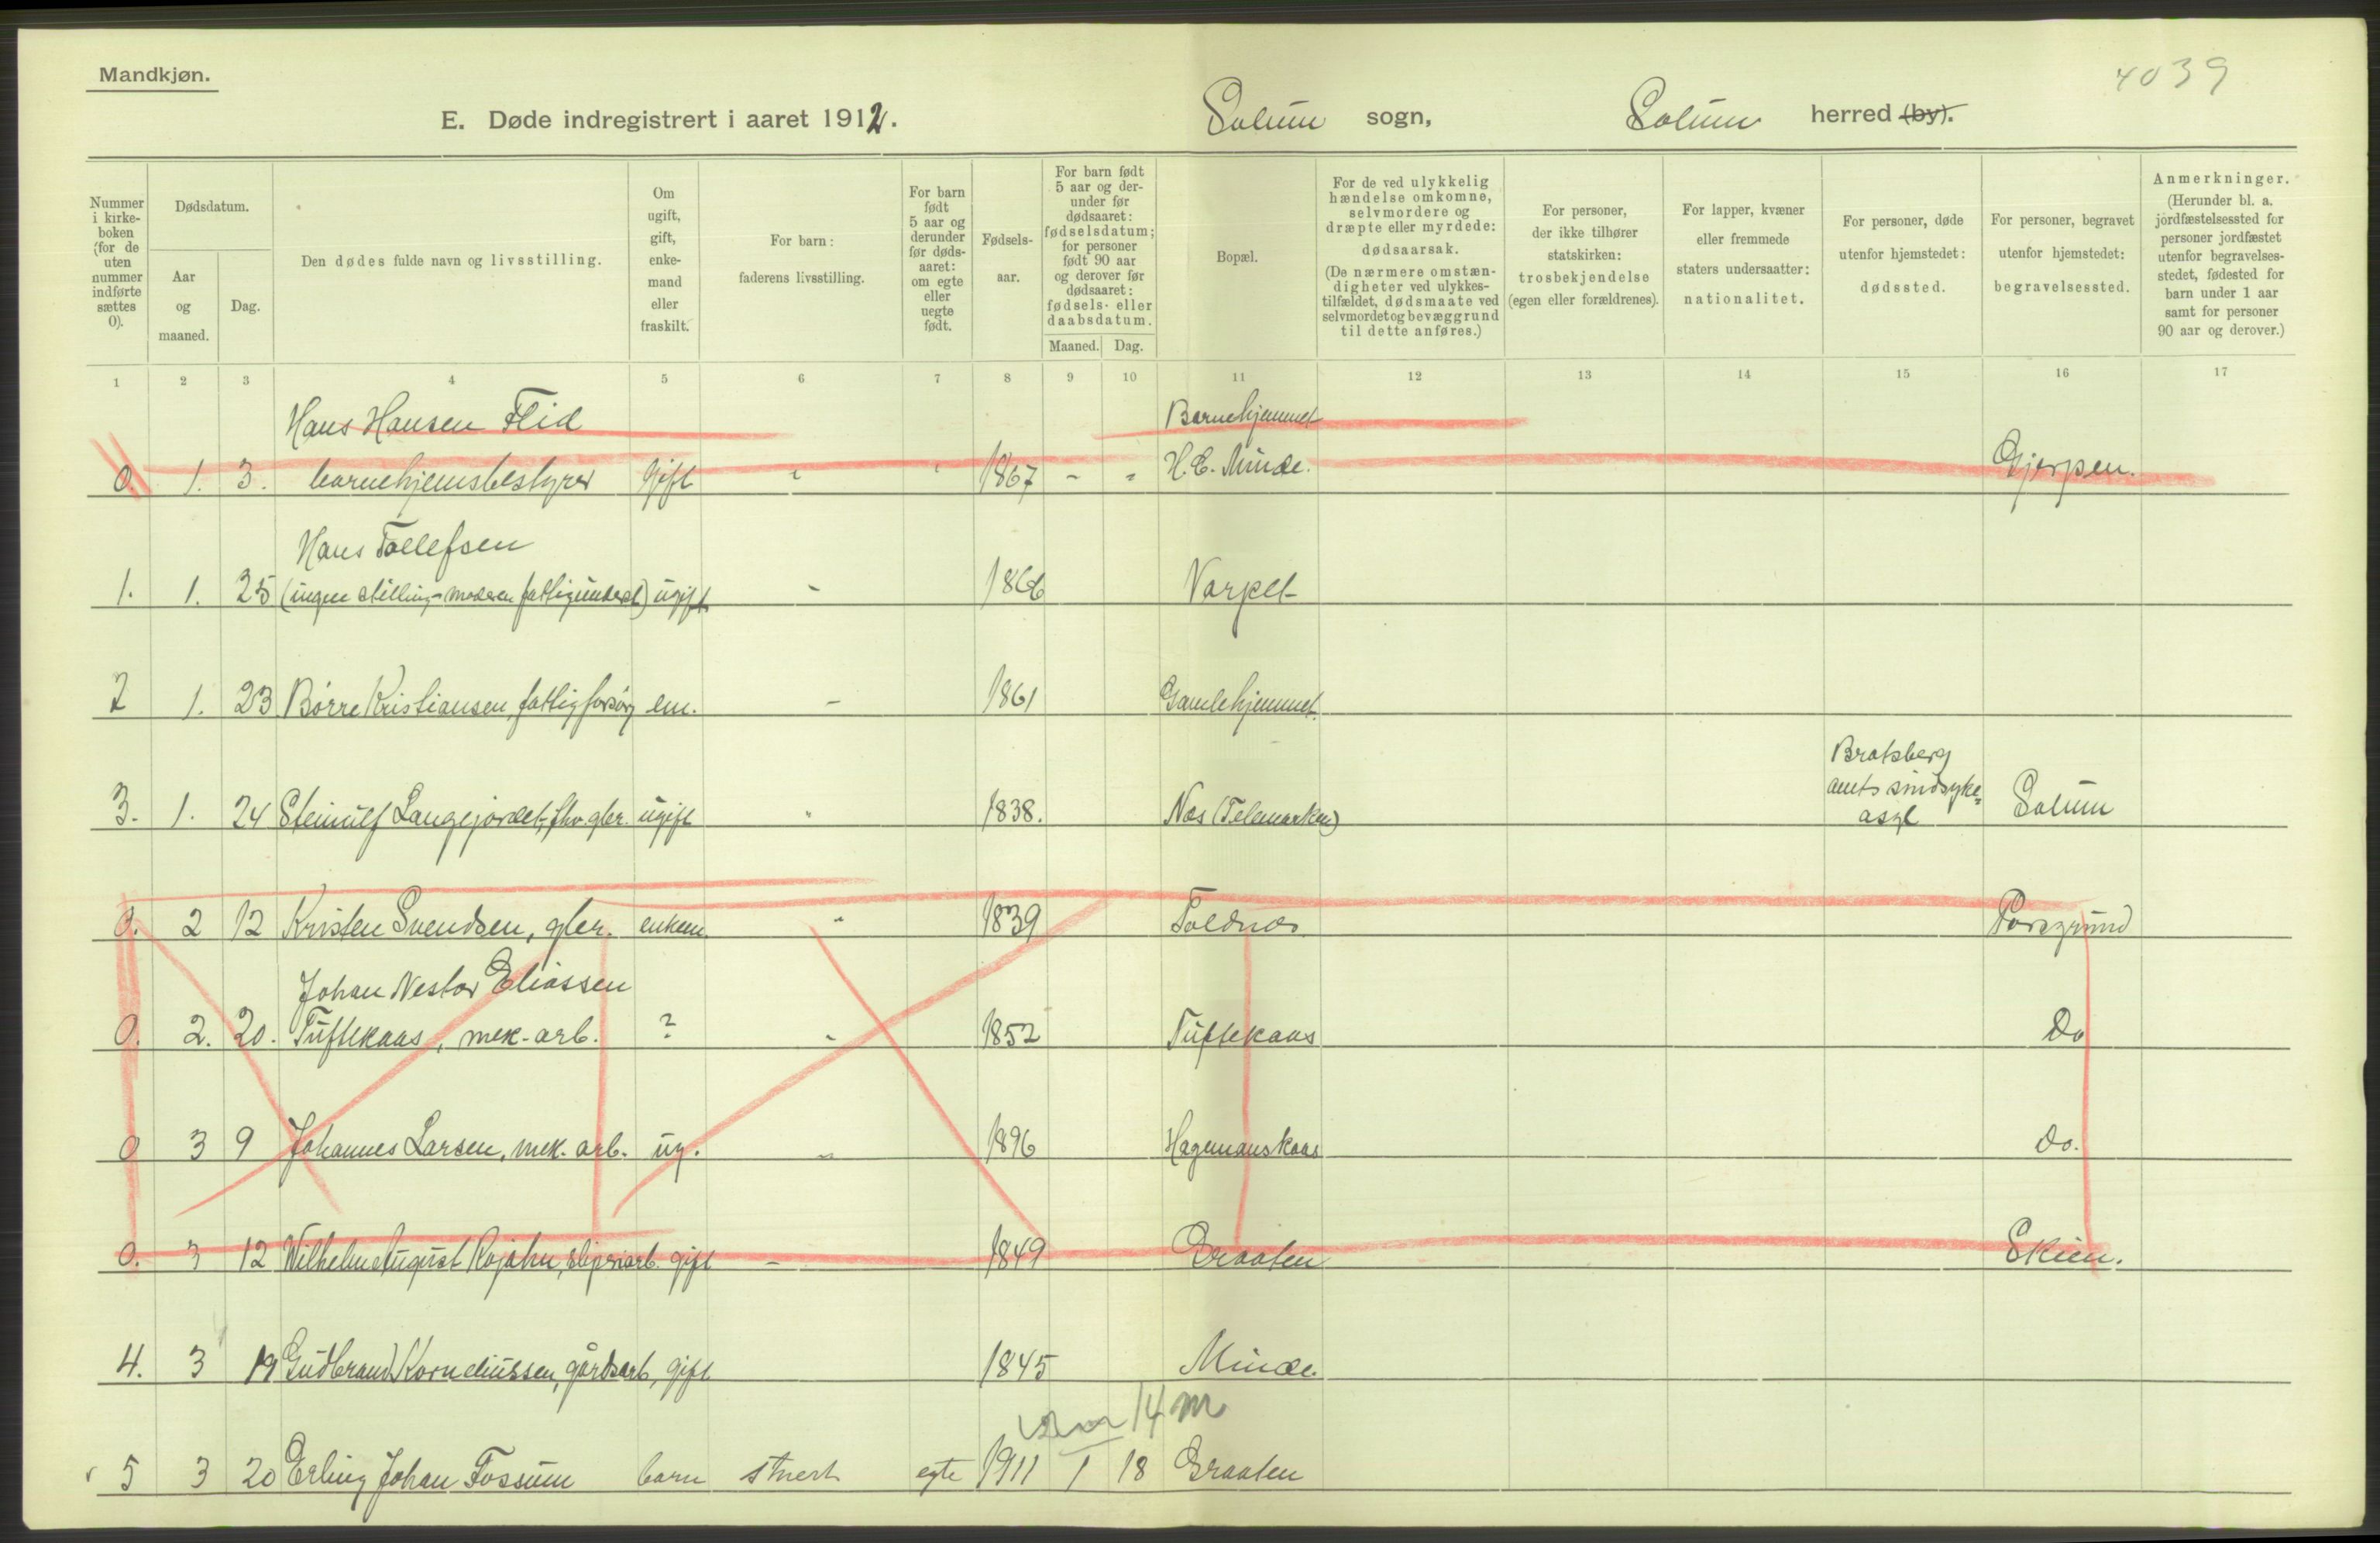 Mandkjøn.
4039
E. Døde indregistrert i aaret 1912. Solum sogn, Solum herred (by).
Nummer i kirke-boken (for de uten nummer indførte sættes 0).
Dødsdatum.
Aar og maaned.
Dag.
Den dødes fulde navn og livsstilling.
Om ugift, gift, enke-mand eller fraskilt.
For barn: faderens livsstilling.
For barn født 5 aar og derunder før døds-aaret: om egte eller uegte født.
Fødsels-aar.
For barn født 5 aar og der-under før dødsaaret: fødselsdatum; for personer født 90 aar og derover før dødsaaret: fødsels- eller daabsdatum.
Maaned. Dag.
Bopæl.
For de ved ulykkelig hændelse omkomne, selvmordere og dræpte eller myrdede: dødsaarsak. (De nærmere omstæn-digheter ved ulykkes-tilfældet, dødsmaate ved selvmordet og bevæggrund til dette anføres.)
For personer, der ikke tilhører statskirken: trosbekjendelse (egen eller forældrenes).
For lapper, kvæner eller fremmede staters undersaatter: nationalitet.
For personer, døde utenfor hjemstedet: dødssted.
For personer, begravet utenfor hjemstedet: begravelsessted.
Anmerkninger. (Herunder bl. a. jordfæstelsessted for personer jordfæstet utenfor begravelses-stedet, fødested for barn under 1 aar samt for personer 90 aar og derover.)
1 2 3 4 5 6 7 8 9 10 11 12 13 14 15 16 17
Hans Hansen Flid Barnehjemmet
0. 1. 3. barnehjemsbestyrer gift " " 1867 - " H.C. Minde. Gjerpen.
Hans Tollefsen
1. 1. 25 (ingen stilling - moderen fattigunderst) ugift - 1866 Varpet
2 1. 23 Børre Kristiansen, fattigforsörg em. - 1861 Gamlehjemmet.
Bratsberg
amts sindsyke=
3. 1. 24 Steinulf Langejordet, fhv. gbr. ugift " 1838. Nes (Telemarken) asyl Solum
0. 2 12 Kristen Svendsen, gbr. enkem. " 1839 Toldnes Porsgrund
Johan Nestor Eliassen
0. 2. 20. Tuftekaas, mek-arb. ? " 1852 Tuftekaas Do
0 3 9 Johannes Larsen, mek. arb. ug. " 1896 Hagemanskaas do.
0. 3 12 Wilhelm August Rojahn, sliperiarb. gift - 1849 Graaten Skien.
4. 3 19 Gudbrand Korneliussen, gårdsarb, gift 1845 Minde.
14 m
5 3 20 Erling Johan Fossum barn stuert egte 1911 1 18 Graaten